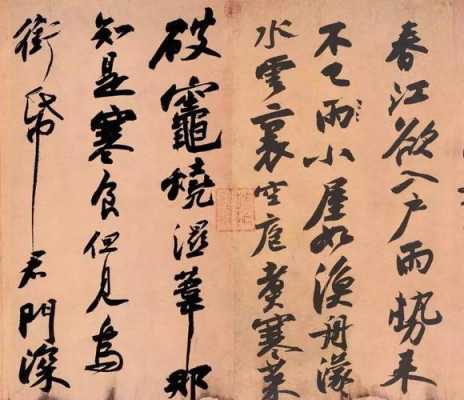 春江欲入戶雨勢來
不已雨小屋如漁舟濛
水雲裏空庖煑寒菜
破竈燒濕葦那
知是寒食但見烏
銜帋君門深